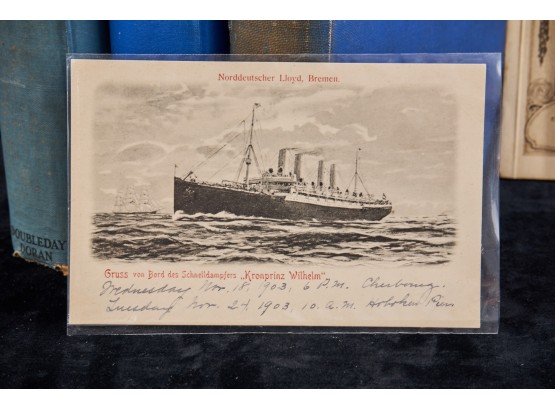 Norddeutscher Lloyd, Bremen
Gruss von Bord des Schnelldampfers „Kronprinz Wilhelm”
Wednesday Nov. 18, 1903, 6 P.M. Cherbourg.
Tuesday Nov. 24 1903, 10 A.M. Hoboken Pier
DOUBLEDAY
DORAN